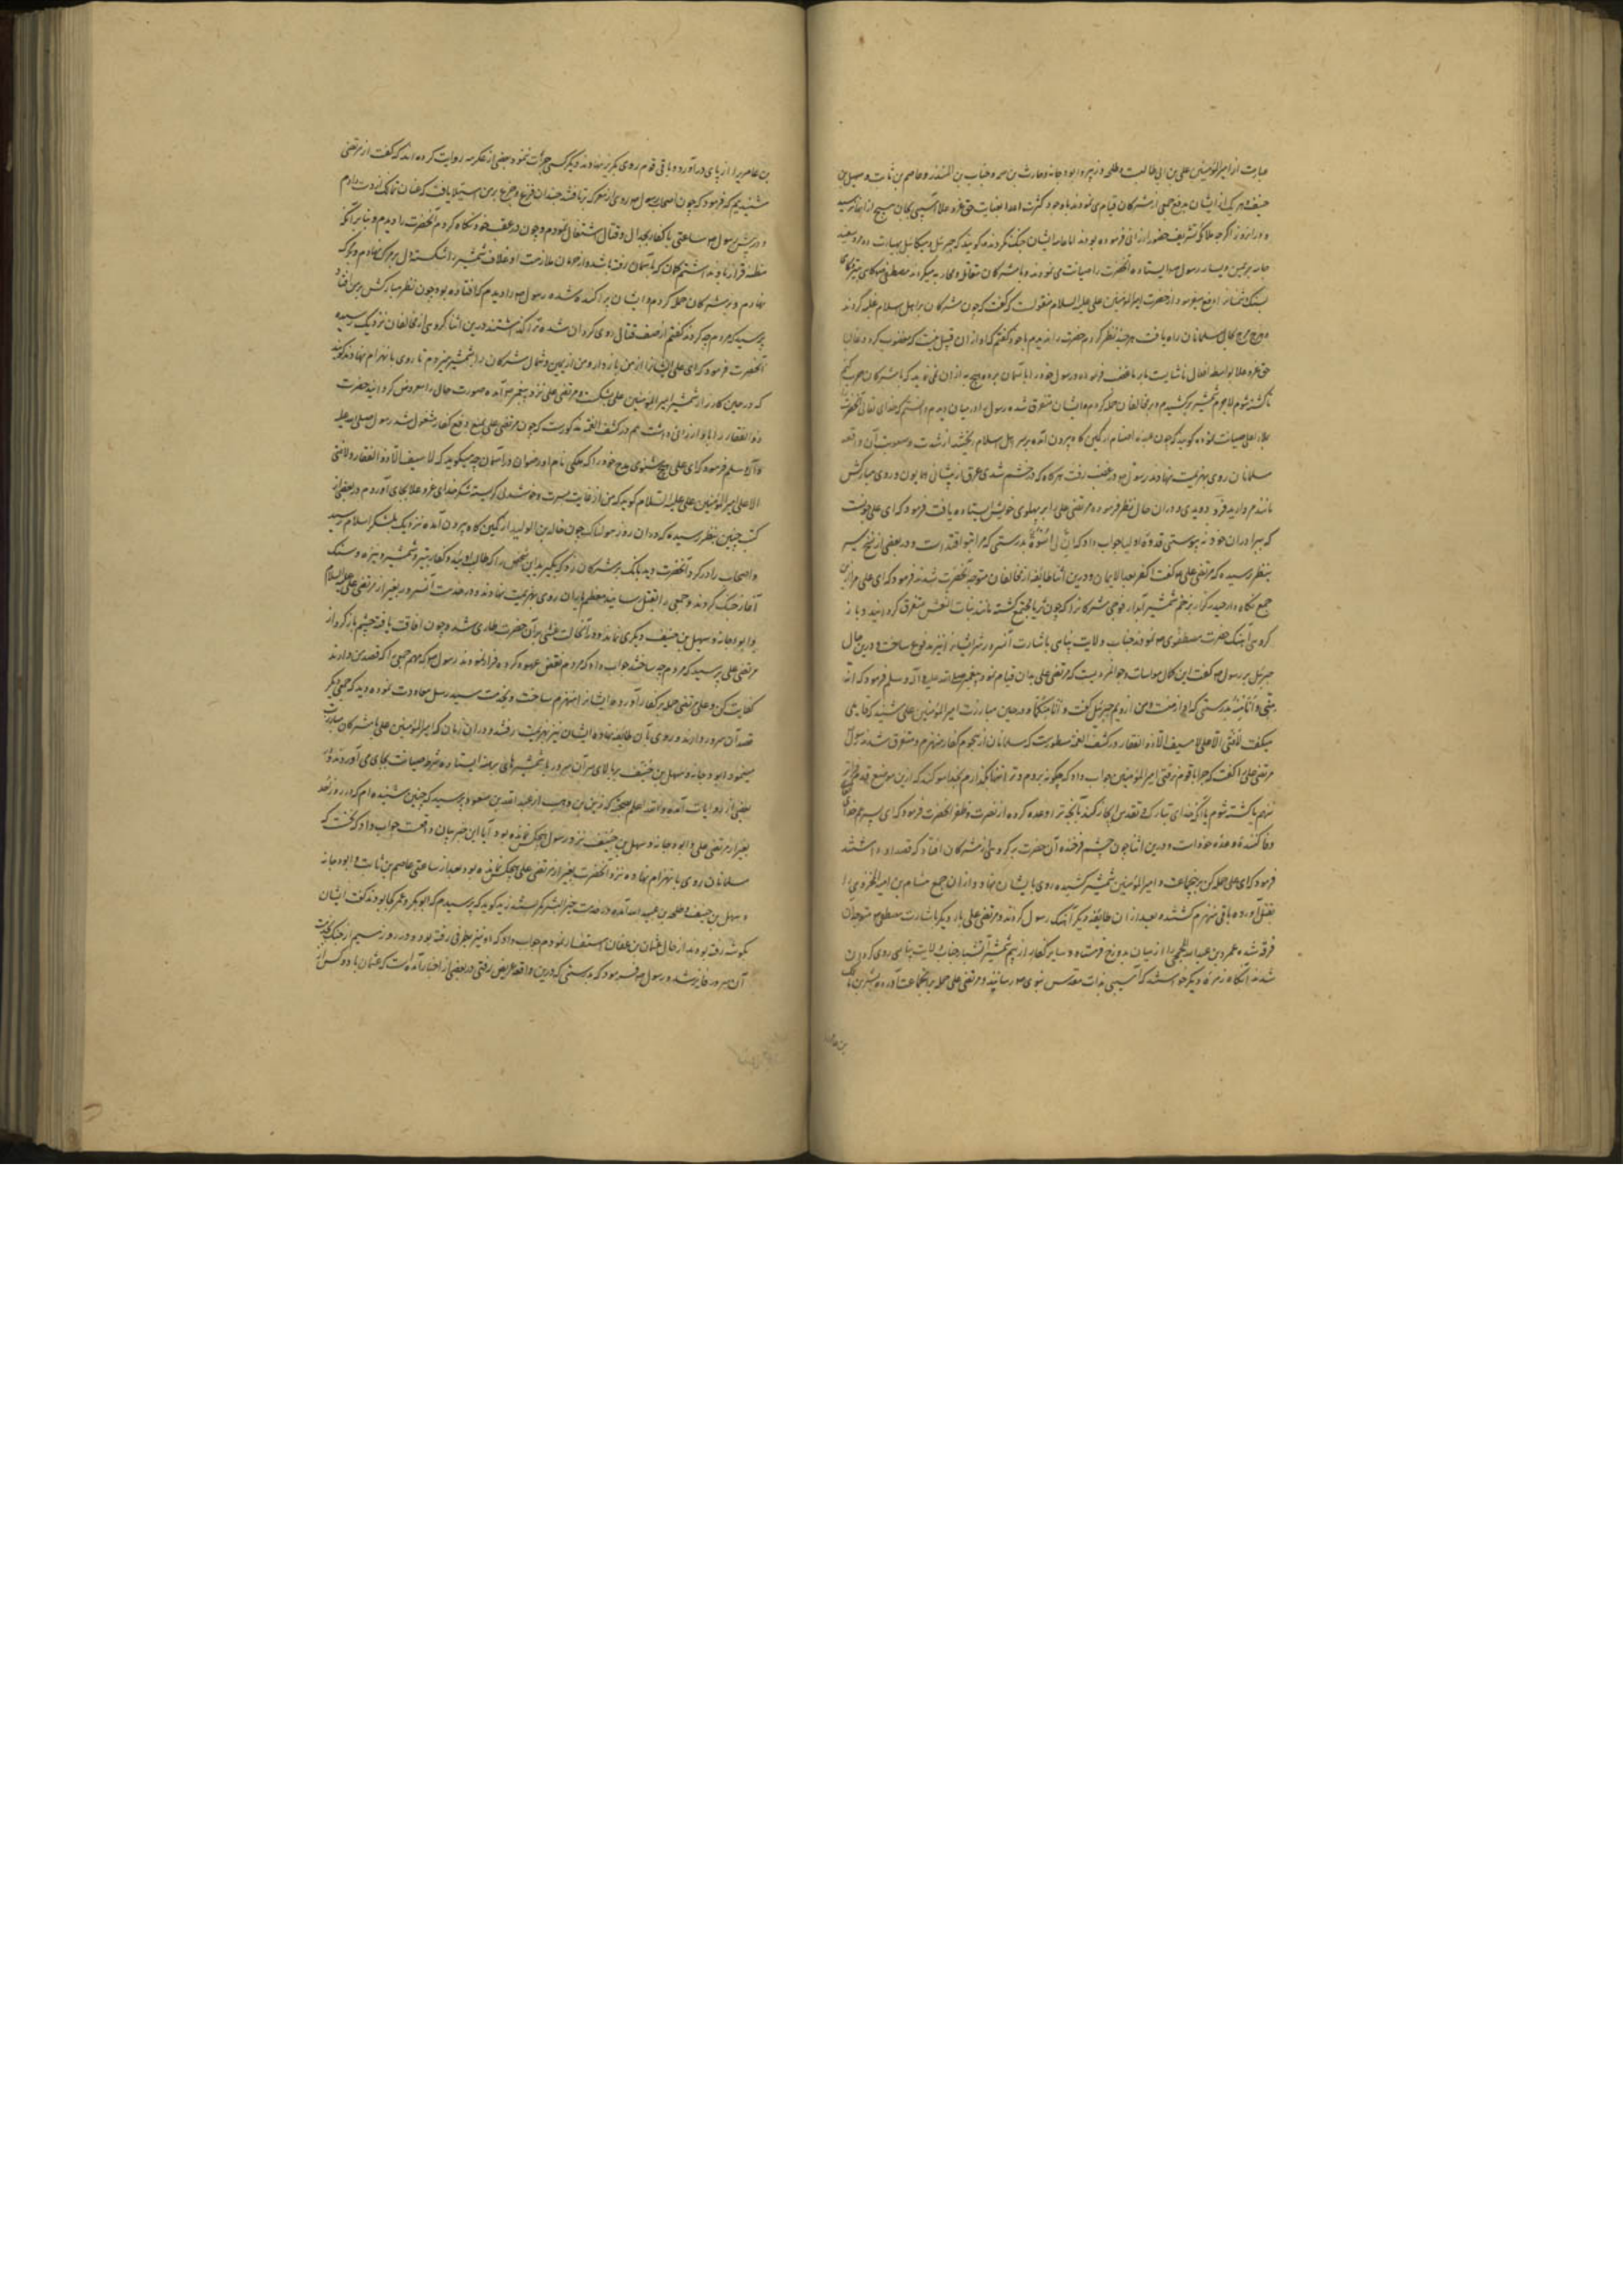 عبارت از امیرالمؤمنین علی بن ابی طالب و طلحه و زبیر و ابو دجانه و حارث بن صمه و خباب بن المنذر و عاصم بن ثابت و سهیل بن
حنیف و هر یک از ایشان بدفع جمعی از مشرکان قیام می نمودند با وجود کثرت اعدا بعنایت حق عز و علا آسیبی بجان هیچ از انها نرسید
و در انروز اگرچه ملائکه تشریف حضور ارزانی فرموده بودند اما با ایشان جنگ نکردند گویند که جبرئیل و میکائیل بصورت دو مرد سفید
جامه بر یمین و یسار رسول ص ایستاده آنحضرت را صیانت می نمودند و با مشرکان مقاتله و محاربه میکردند مصطفی ص گاهی بتیر و گاه
بسنگ دفع میفرمود از حضرت امیرالمؤمنین علی علیه السلام منقولست که گفت که چون مشرکان بر اهل اسلام غلبه کردند
و هرج مرج بحال مسلمانان راه یافت هر چند نظر کردم حضرت را ندیدم با خود گفتم که او از ان قبیل نیست که
حق عز و علا بواسطه افعال ناشایست ما بر ما غضب فرموده و رسول خود را باسمان برده هیچ به از ان نمی نماید که با مشرکان حرب کنم
تا کشته شوم لاجرم شمشیر بر کشیدم و بر مخالفان حمله کردم و ایشان متفرق شده رسول را در میان دیدم دانستم که خدای تعالی آنحضرت را
مسلمانان روی بهزیمت نهادند رسول ص در غضب رفت هرگاه که در خشم شدی عرق از پیشانی همایون و روی مبارکش
مانند مروارید فرو دویدی و در ان حال نظر فرموده مرتضی علی را بر پهلوی خویش ایستاده یافت فرمود که ای علی چونست
که ببرادران خود نه پیوستی قدوه اولیا جواب داد که ان لی بک اسوة بدرستی که مرا بتو اقتداست و در بعضی از نسخ سیر
بنظر رسیده که مرتضی علی ع گفت اکفر بعد الایمان و درین اثنا طایفه از مخالفان متوجه آنحضرت شدند فرمود که ای علی مرا ازین
جمع نگاه دار حیدر کرار بزخم شمشیر آبدار فوجی مشرکانرا که چون ثریا مجتمع گشته مانند بنات النعش متفرق گردانید و باز
گروهی آهنگ حضرت مصطفوی ص نمودند جناب ولایت پناهی باشارت آنسرور شر ایشانرا نیز مدفوع ساخت و درین حال
جبرئیل بر رسول ص گفت این کمال مواسات و جوانمردیست که مرتضی علی بدان قیام نمود پیغمبر صلی الله علیه و آله و سلم فرمود که انه
منی و انا منه بدرستی که او از منست و من ازویم جبرئیل گفت و انا منکما و در حین مبارزت امیرالمؤمنین علی شنید که قایلی
میگفت لافتی الا علی لا سیف الا ذو الفقار در کشف الغمه مسطورست که مسلمانان از هجوم کفار منهزم و متفرق شدند رسول
مرتضی علی را گفت که چرا با قوم نرفتی امیرالمؤمنین جواب داد که چگونه بروم و ترا تنها بگذارم بخدا سوگند که ازین موضع قدم
نزنم تا کشته شوم یا آنکه خدای تبارک و تقدس ایجاز کند آنچه ترا وعده کرده از نصرت و ظفر آنحضرت فرمود که ای
وفا کننده وعده خود است و درین اثنا چون چشم فرخنده آن حضرت بر گروهی از مشرکان افتاد که قصد او داشتند
فرمود که ای علی حمله کن برین جماعت و امیرالمؤمنین شمشیر کشیده روی بایشان نهاد و از ان جمع هشام بن امیه المخزومی را
بقتل آورده باقی منهزم گشتند و بعد از ان طایفه دیگر آهنگ رسول کردند و مرتضی علی بار دیگر باشارت مصطفی ص متوجه ان
فرقه شده عمرو بن عبدالله الجمحی را از میان بدوزخ فرستاد و سایر کفار از بیم شمشیر آتشبار جناب ولایت پناهی روی گردان
شدند آنگاه زمره دیگر خواستند که آسیبی بذات مقدس نبوی ص رسانند و مرتضی علی حمله بر آنجماعت آورده بشر بن مالک
بن عامریرا از پای درآورد و باقی قوم روی بگریز نهادند و دیگر کسی جرات ننمود و بعضی از عکرمه روایت کرده اند که گفت از مرتضی
شنیدیم که فرمود که چون اصحاب رسول ص روی از معرکه برتافتند چندان فزع و جزع بر من استیلا یافت که عنان تمالک از دست دادم
و در پیش رسول ص ساعتی با کفار بجدال و قتال اشتغال نمودم و چون در عقب خود نگاه کردم آنحضرت را ندیدم و بنا بر آنکه
نهادم و بر مشرکان حمله کردم و ایشان پراکنده شده رسول ص را دیدم که افتاده بود چون نظر مبارکش بر من افتاد
پرسید که مردم چه کردند گفتم از صف قتال روی گردان شده ترا گذاشتند درین اثنا گروهی از مخالفان نزدیک رسیده
آنحضرت فرمود که ای علی ایشانرا از من باز دار و من از یمین و شمال مشرکان را بشمشیر میزدم تا روی بانهزام نهادند گویند
که در حین کارزار شمشیر امیرالمؤمنین علی بشکست و مرتضی علی نزد پیغمبر ص آمده صورت حال را معروض گردانید حضرت
ذو الفقار را باو ارزانی داشت هم در کشف الغمه مذکورست که چون مرتضی علی بمنع و دفع کفار مشغول شد رسول صلی الله علیه
و آله و سلم فرمود که ای علی هیچ میشنوی مدح خود را که ملکی نام او رضوان در آسمان چه میگوید که لا سیف الا ذو الفقار و لا فتی
الا علی امیرالمؤمنین علی علیه السلام گوید که من از غایت مسرت و خوشدلی گریسته شکر خدای عز و علا بجای آوردم در بعضی از
کتب چنین بنظر رسیده که در ان روز هولناک چون خالد بن الولید از کمین گاه بیرون آمده نزدیک بلشکر اسلام رسید
و اصحاب را در گرد آنحضرت دید بانک بر مشرکان زد که بگیرید این شخص را که طالب اویید و کفار بتیر و شمشیر و نیزه و سنگ
آغاز جنگ کردند و جمعی را بقتل رسانیده معظم یاران روی بهزیمت نهادند و در خدمت آنسرور بغیر از مرتضی علی علیه السلام
و ابو دجانه و سهیل بن حنیف دیگری نماند و در آنحالت غشی بر آن حضرت طاری شد و چون افاقت یافته چشم باز کرد از
مرتضی علی پرسید که مردم چه ساختند جواب داد که مردم نقض عهود کرده فرار نمودند رسول ص گفت مهم جمعی را که قصد من دارند
کفایت کن و علی مرتضی حمله بر کفار آورده ایشانرا منهزم ساخت و بخدمت سید رسل معاودت نموده دید که جمعی دیگر
قصد آن سرور دارند و روی بآن طایفه نهاده ایشان نیز بهزیمت رفتند و در ان زمان که امیرالمؤمنین علی با مشرکان مبارزت
مینمود ابو دجانه و سهیل بن حنیف بر بالای سر آن سرور با شمشیرهای برهنه ایستاده شرط صیانت بجای می آوردند و در
بعضی از روایات آمده والله اعلم بصحته که زید بن وهب از عبد الله بن مسعود پرسید که چنین شنیده ام که در روز احد
بغیر از مرتضی علی و ابو دجانه و سهیل بن حنیف نزد رسول هیچکس نمانده بود آیا این خبر بیان واقعست جواب داد که نخست که
مسلمانان روی بانهزام نهاده نزد آنحضرت بغیر از مرتضی علی هیچکس نمانده بود بعد از ساعتی عاصم بن ثابت و ابو دجانه
و سهل بن حنیف و طلحه بن عبید الله آمده در خدمت خیر البشر کمر بستند زید گوید که پرسیدم که ابوبکر و عمر کجا بودند گفت ایشان
بگوشه رفته بودند از حال عثمان بن عفان استفسار نمودم جواب داد که او نیز بطرفی رفته بود و در روز سیم از جنک بخدمت
آن سرور فایز شد و رسول ص فرمود که بدرستی که درین واقعه عریض رفتی در بعضی از اخبار آمده است که عثمان با دو کس از